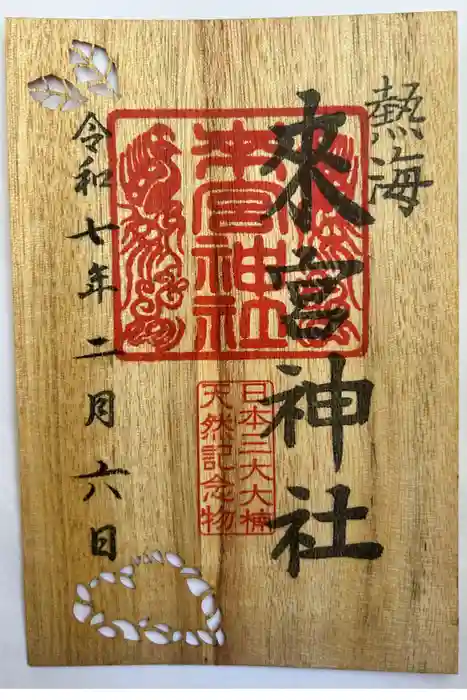 熱海
來宮神社
来宮神社
日本三大大楠
天然記念物
令和七年二月六日